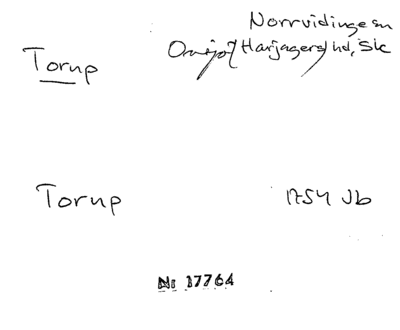 Norrvidinge sn
Torup
Harjagers hd, Sk
Torup
1754 Jb
Nr 17764